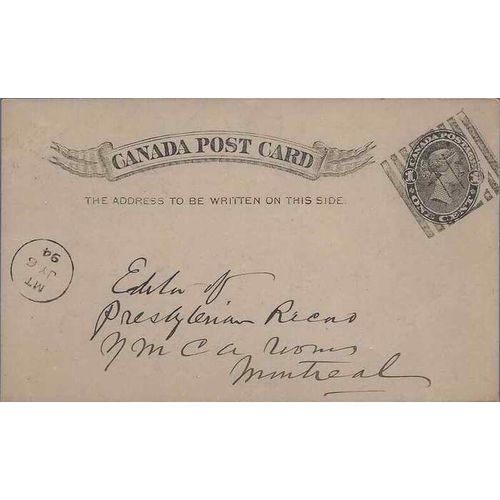 CANADA POST CARD
CANADA POSTAGE
1 1
ONE CENT
THE ADDRESS TO BE WRITTEN ON THIS SIDE.
MT
JY 6
94
Editor of
Presbyterian Record
YMCA rooms
Montreal